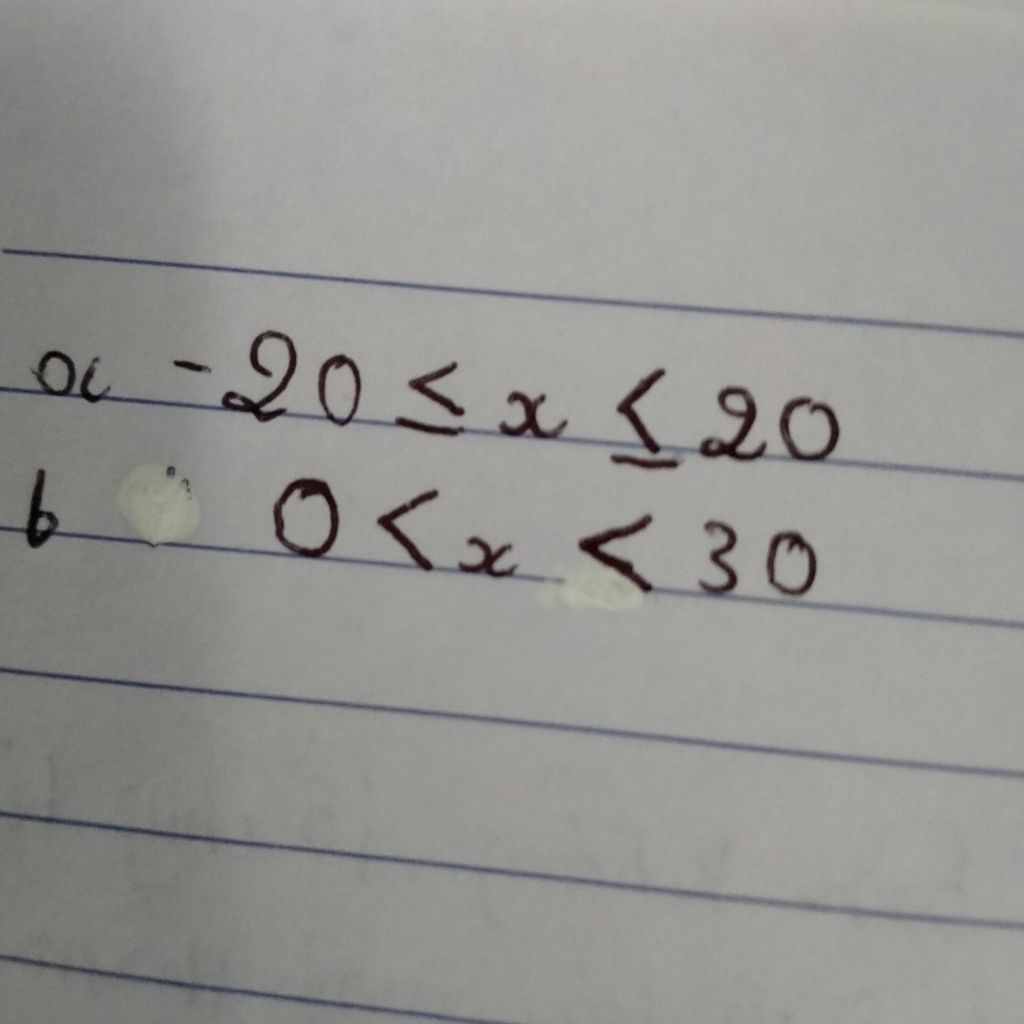 a -20 ≤ x ≤ 20
b 0 < x < 30